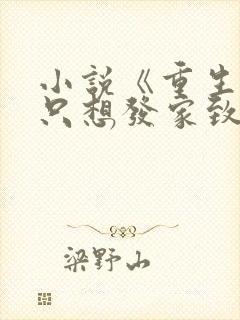 小說《重生
只想發家致
梁野山